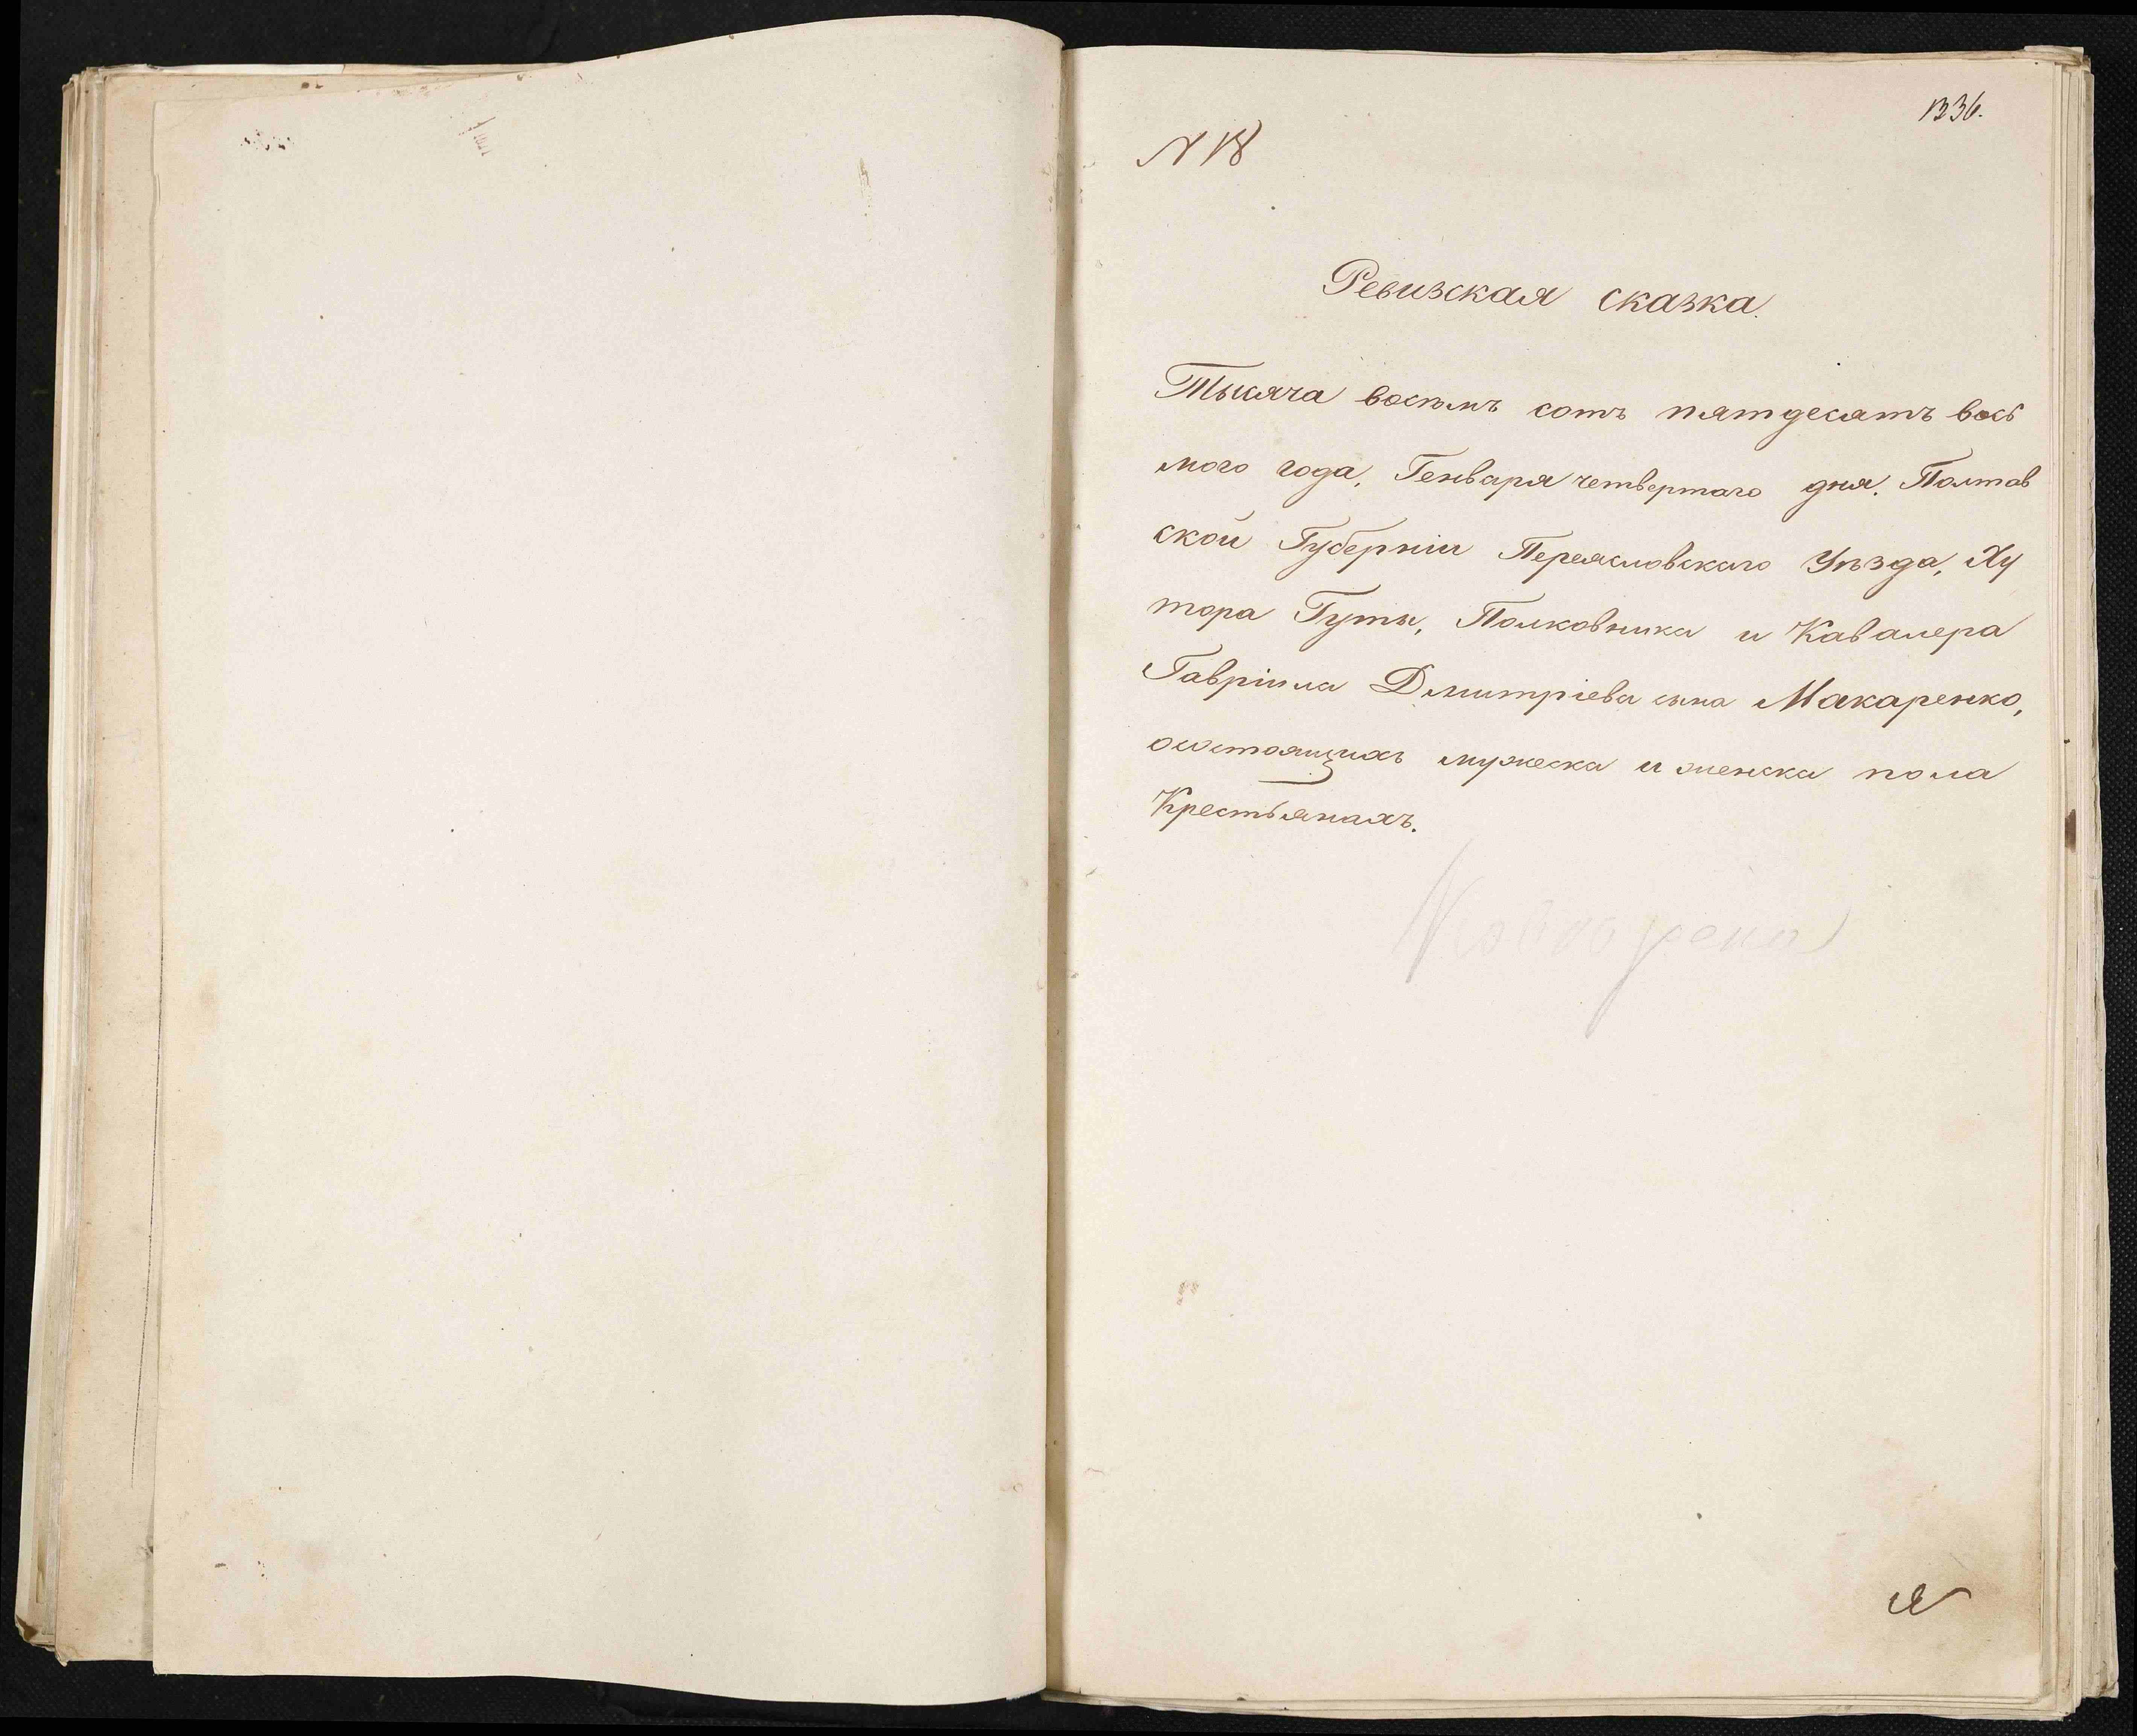 1336.
N 18
Ревизская сказка.
Тысяча восемь сотъ пятдесятъ вось
мого года, Генваря четвертаго дня. Полтав
ской Губерніи Переясловскаго Уѣзда, Ху
тора Гуты, Полковника и Кавалера
Гавріила Дмитріева сына Макаренко,
осостоящихъ мужеска и женска пола
Крестьянахъ.